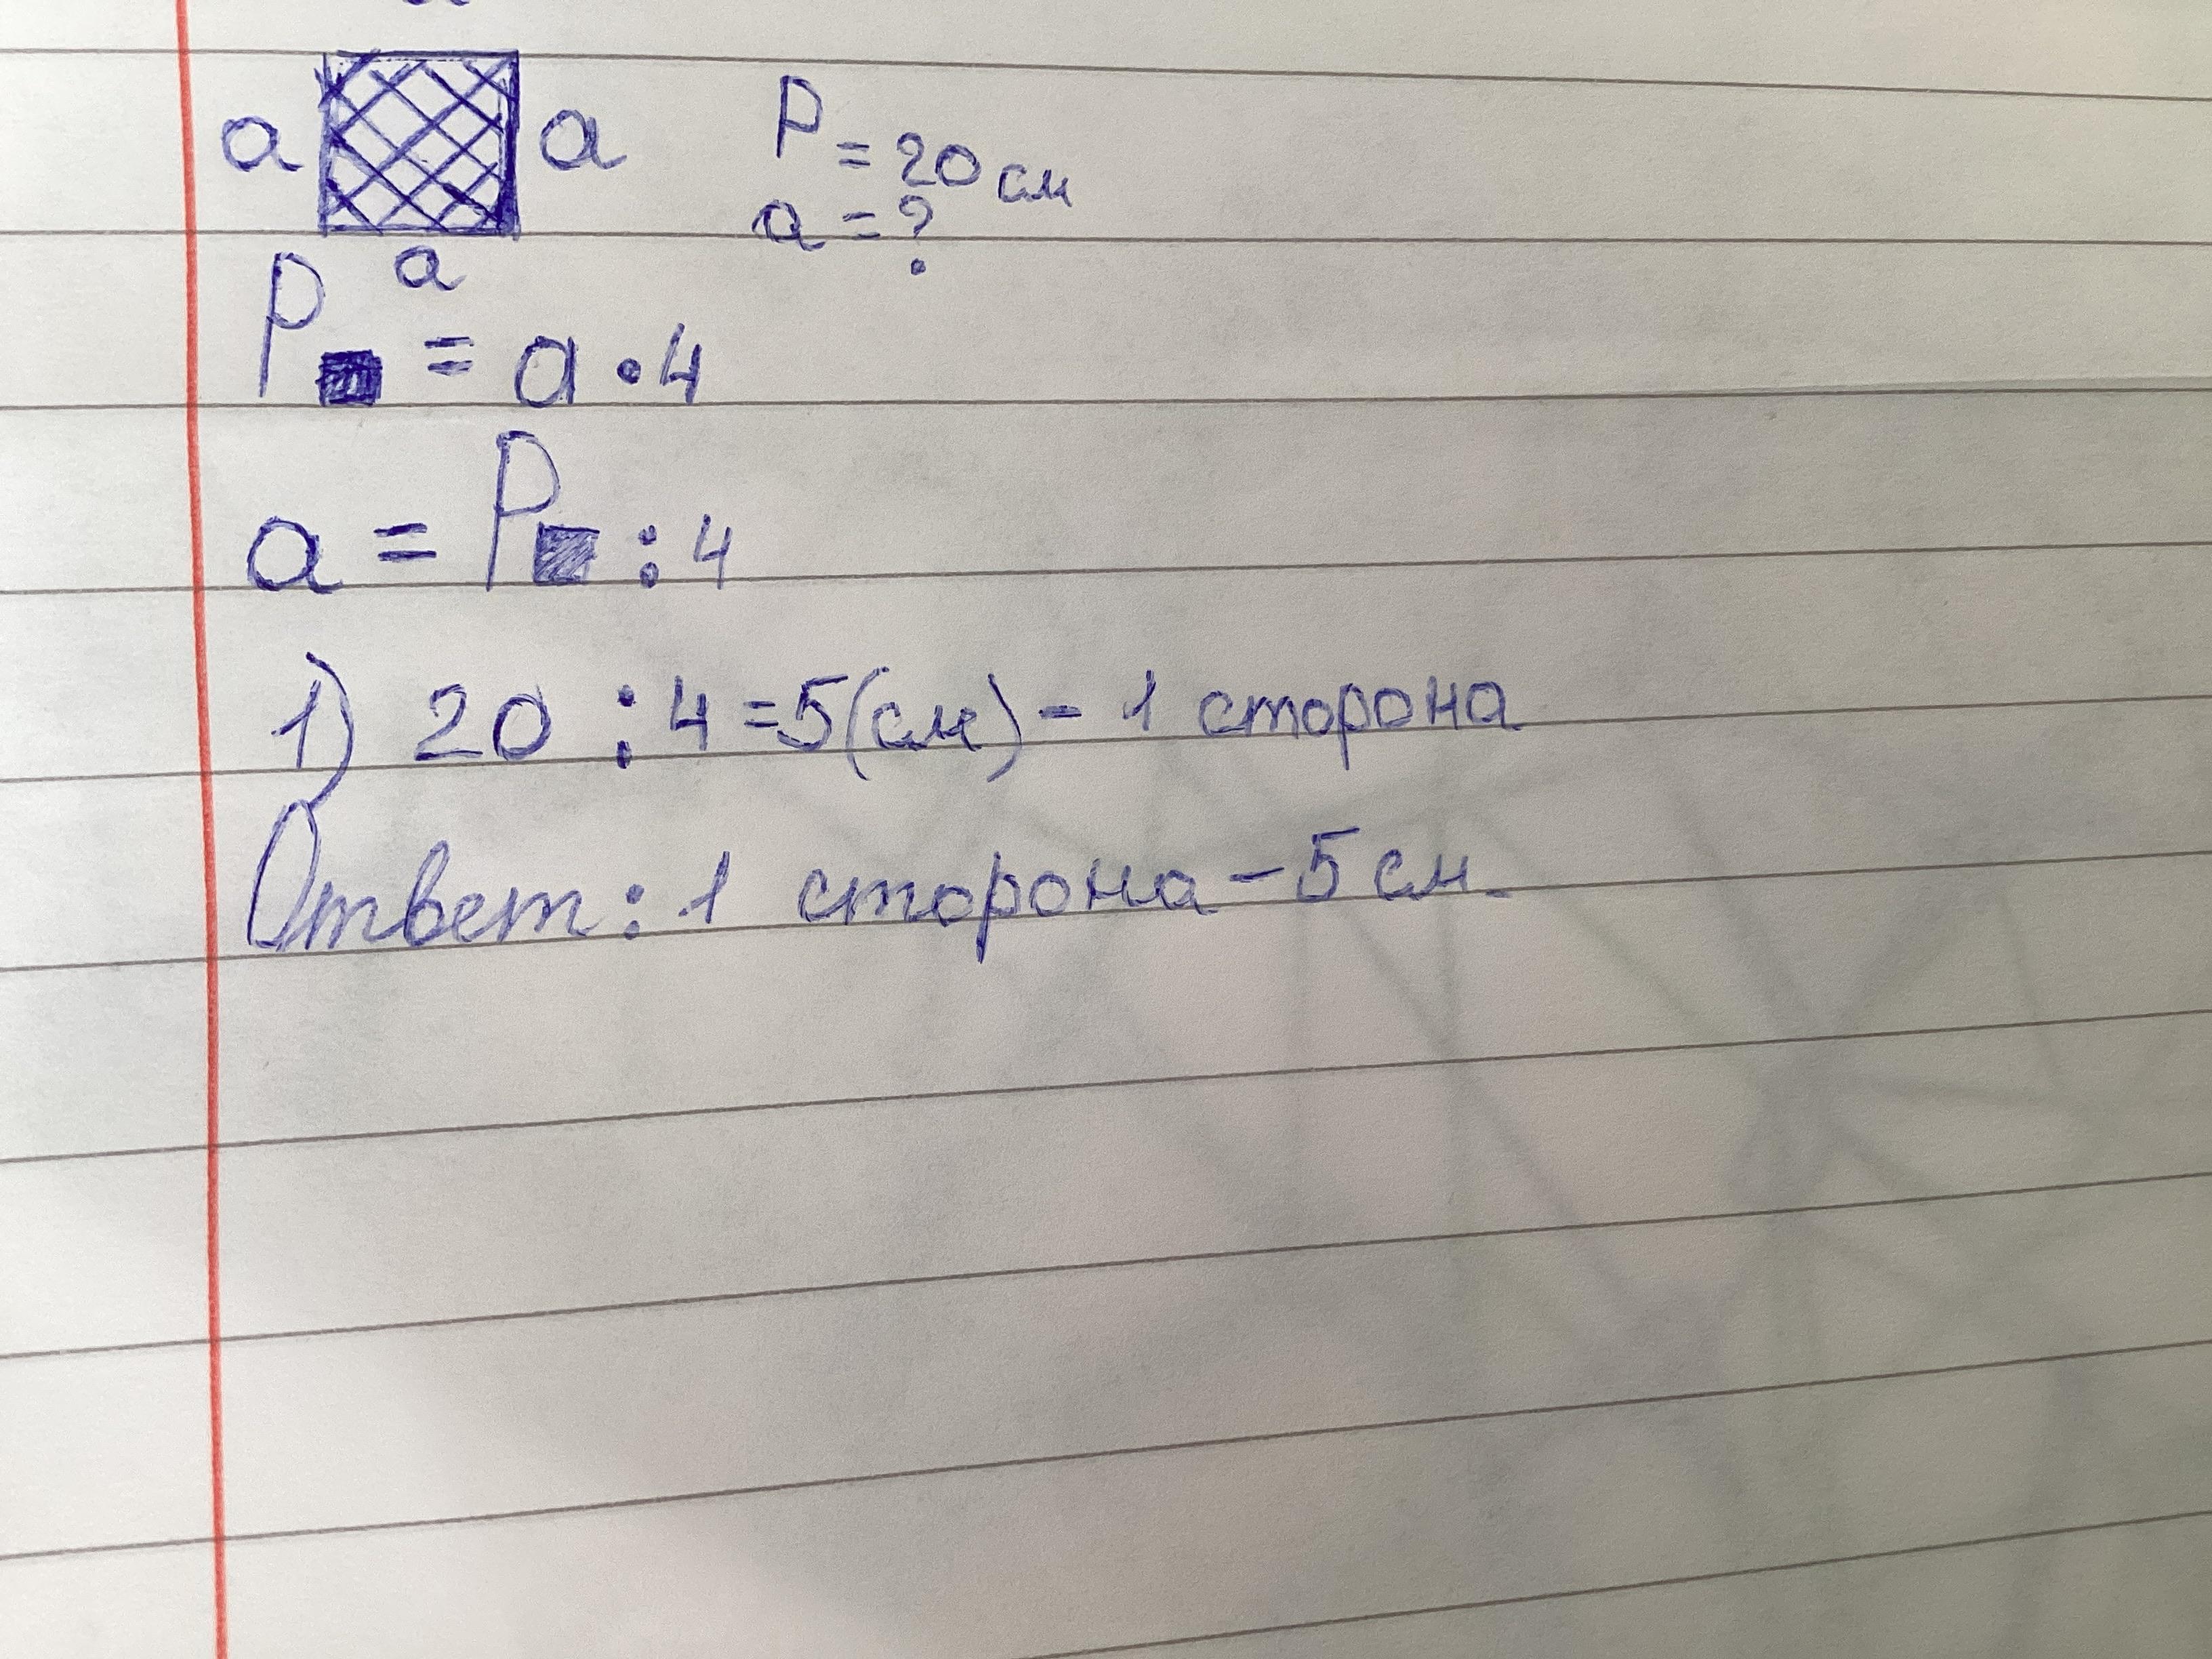 a
a a P = 20 см
a = ?
a
P■ = a · 4
a = P■ : 4
1) 20 : 4 = 5 (см) - 1 сторона
Ответ: 1 сторона – 5 см.